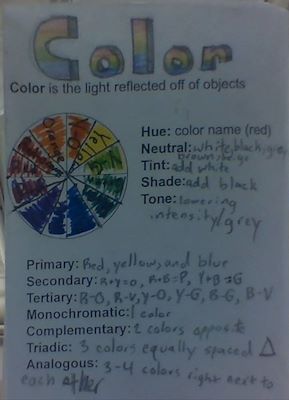 Color
Color is the light reflected off of objects
Hue: color name (red)
Neutral: white, black, grey
brown, beige
Tint: add white
Shade: add black
Tone: lowering
intensity/grey
Yellow
Y-O
Orange
Y-G
Primary: Red, yellow, and blue
Secondary: R+Y=O, R+B=P, Y+B=G
Tertiary: R-O, R-V, Y-O, Y-G, B-G, B-V
Monochromatic: 1 color
Complementary: 2 colors opposite
Triadic: 3 colors equally spaced Δ
Analogous: 3-4 colors right next to
each other